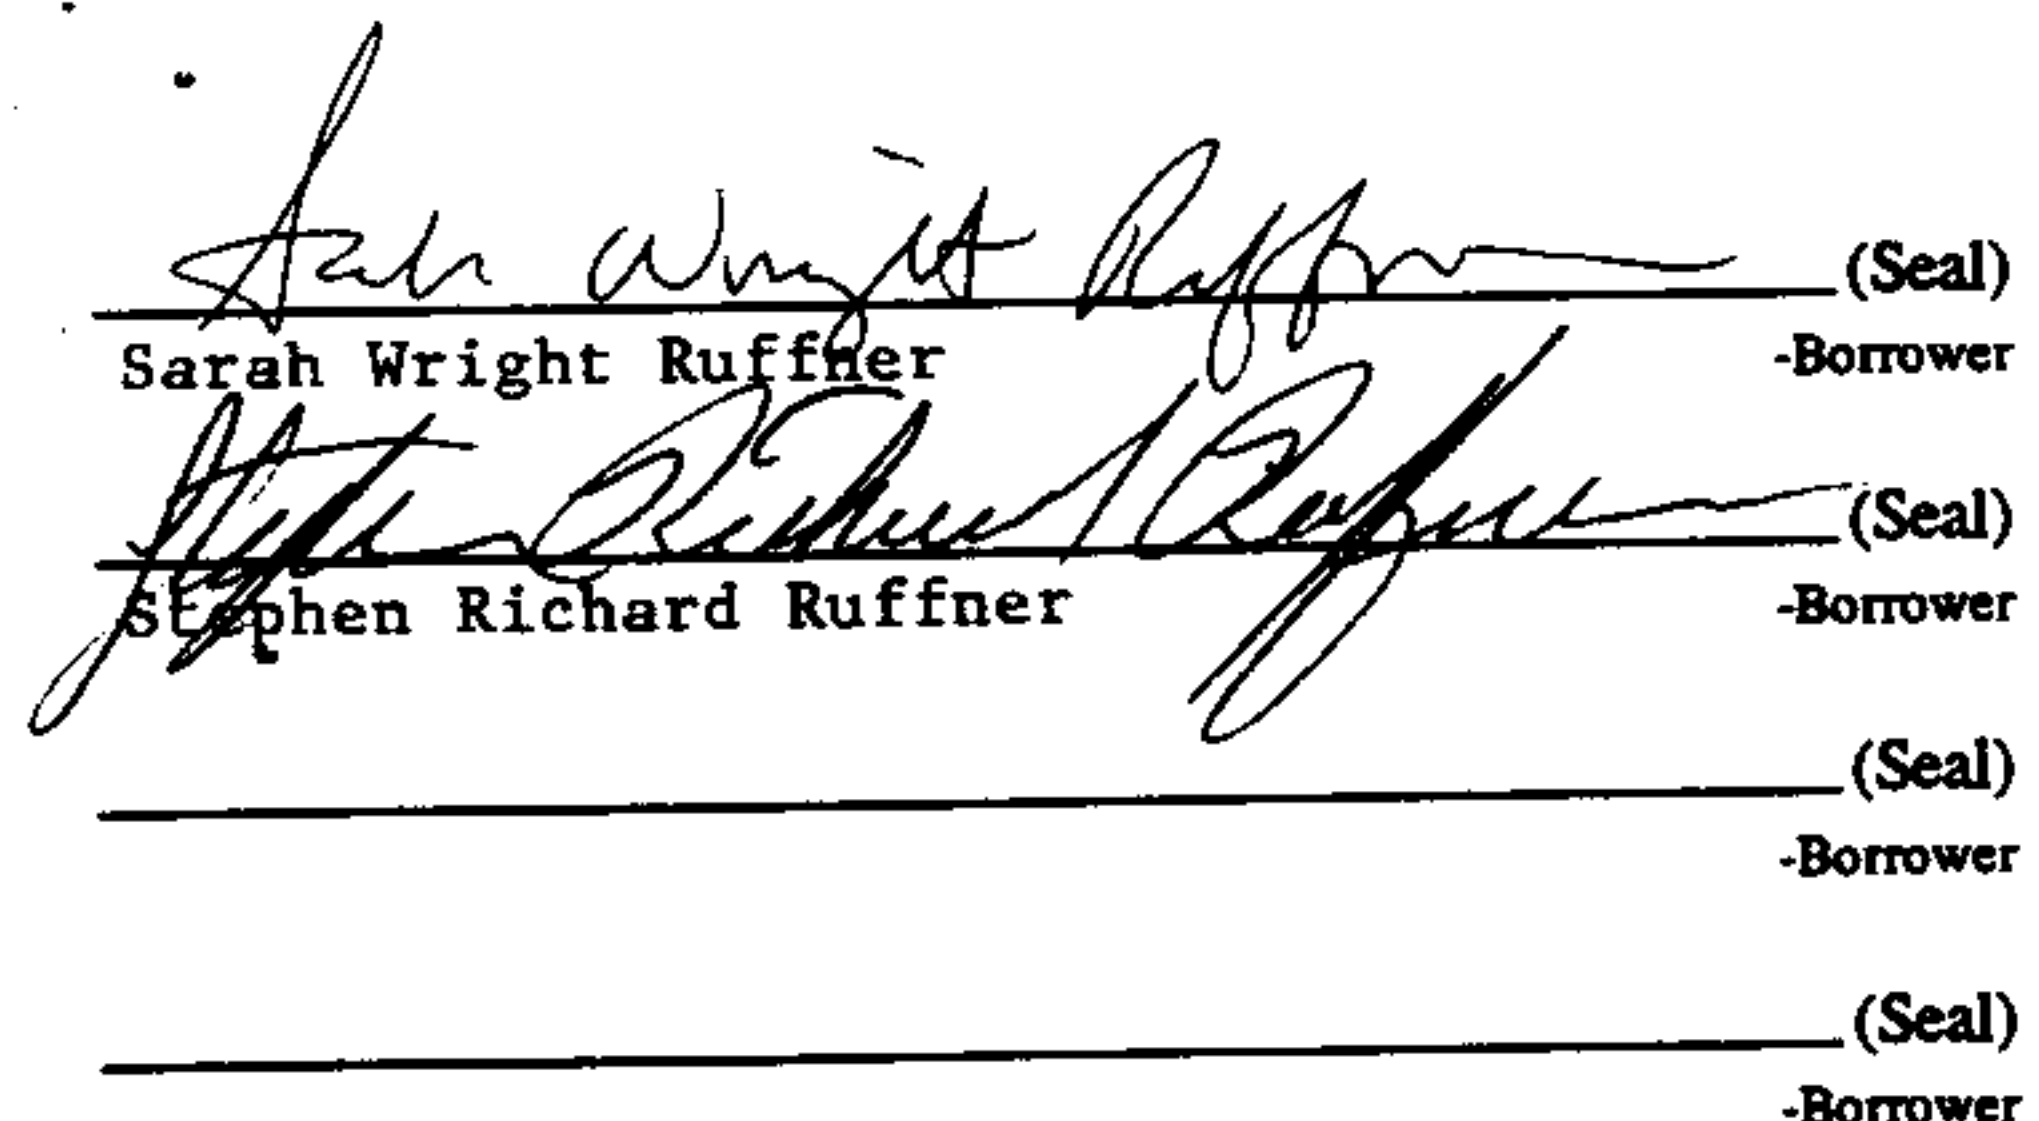 Sarah Wright Ruffner (Seal)
Sarah Wright Ruffner -Borrower
Stephen Richard Ruffner (Seal)
Stephen Richard Ruffner -Borrower
(Seal)
-Borrower
(Seal)
-Borrower